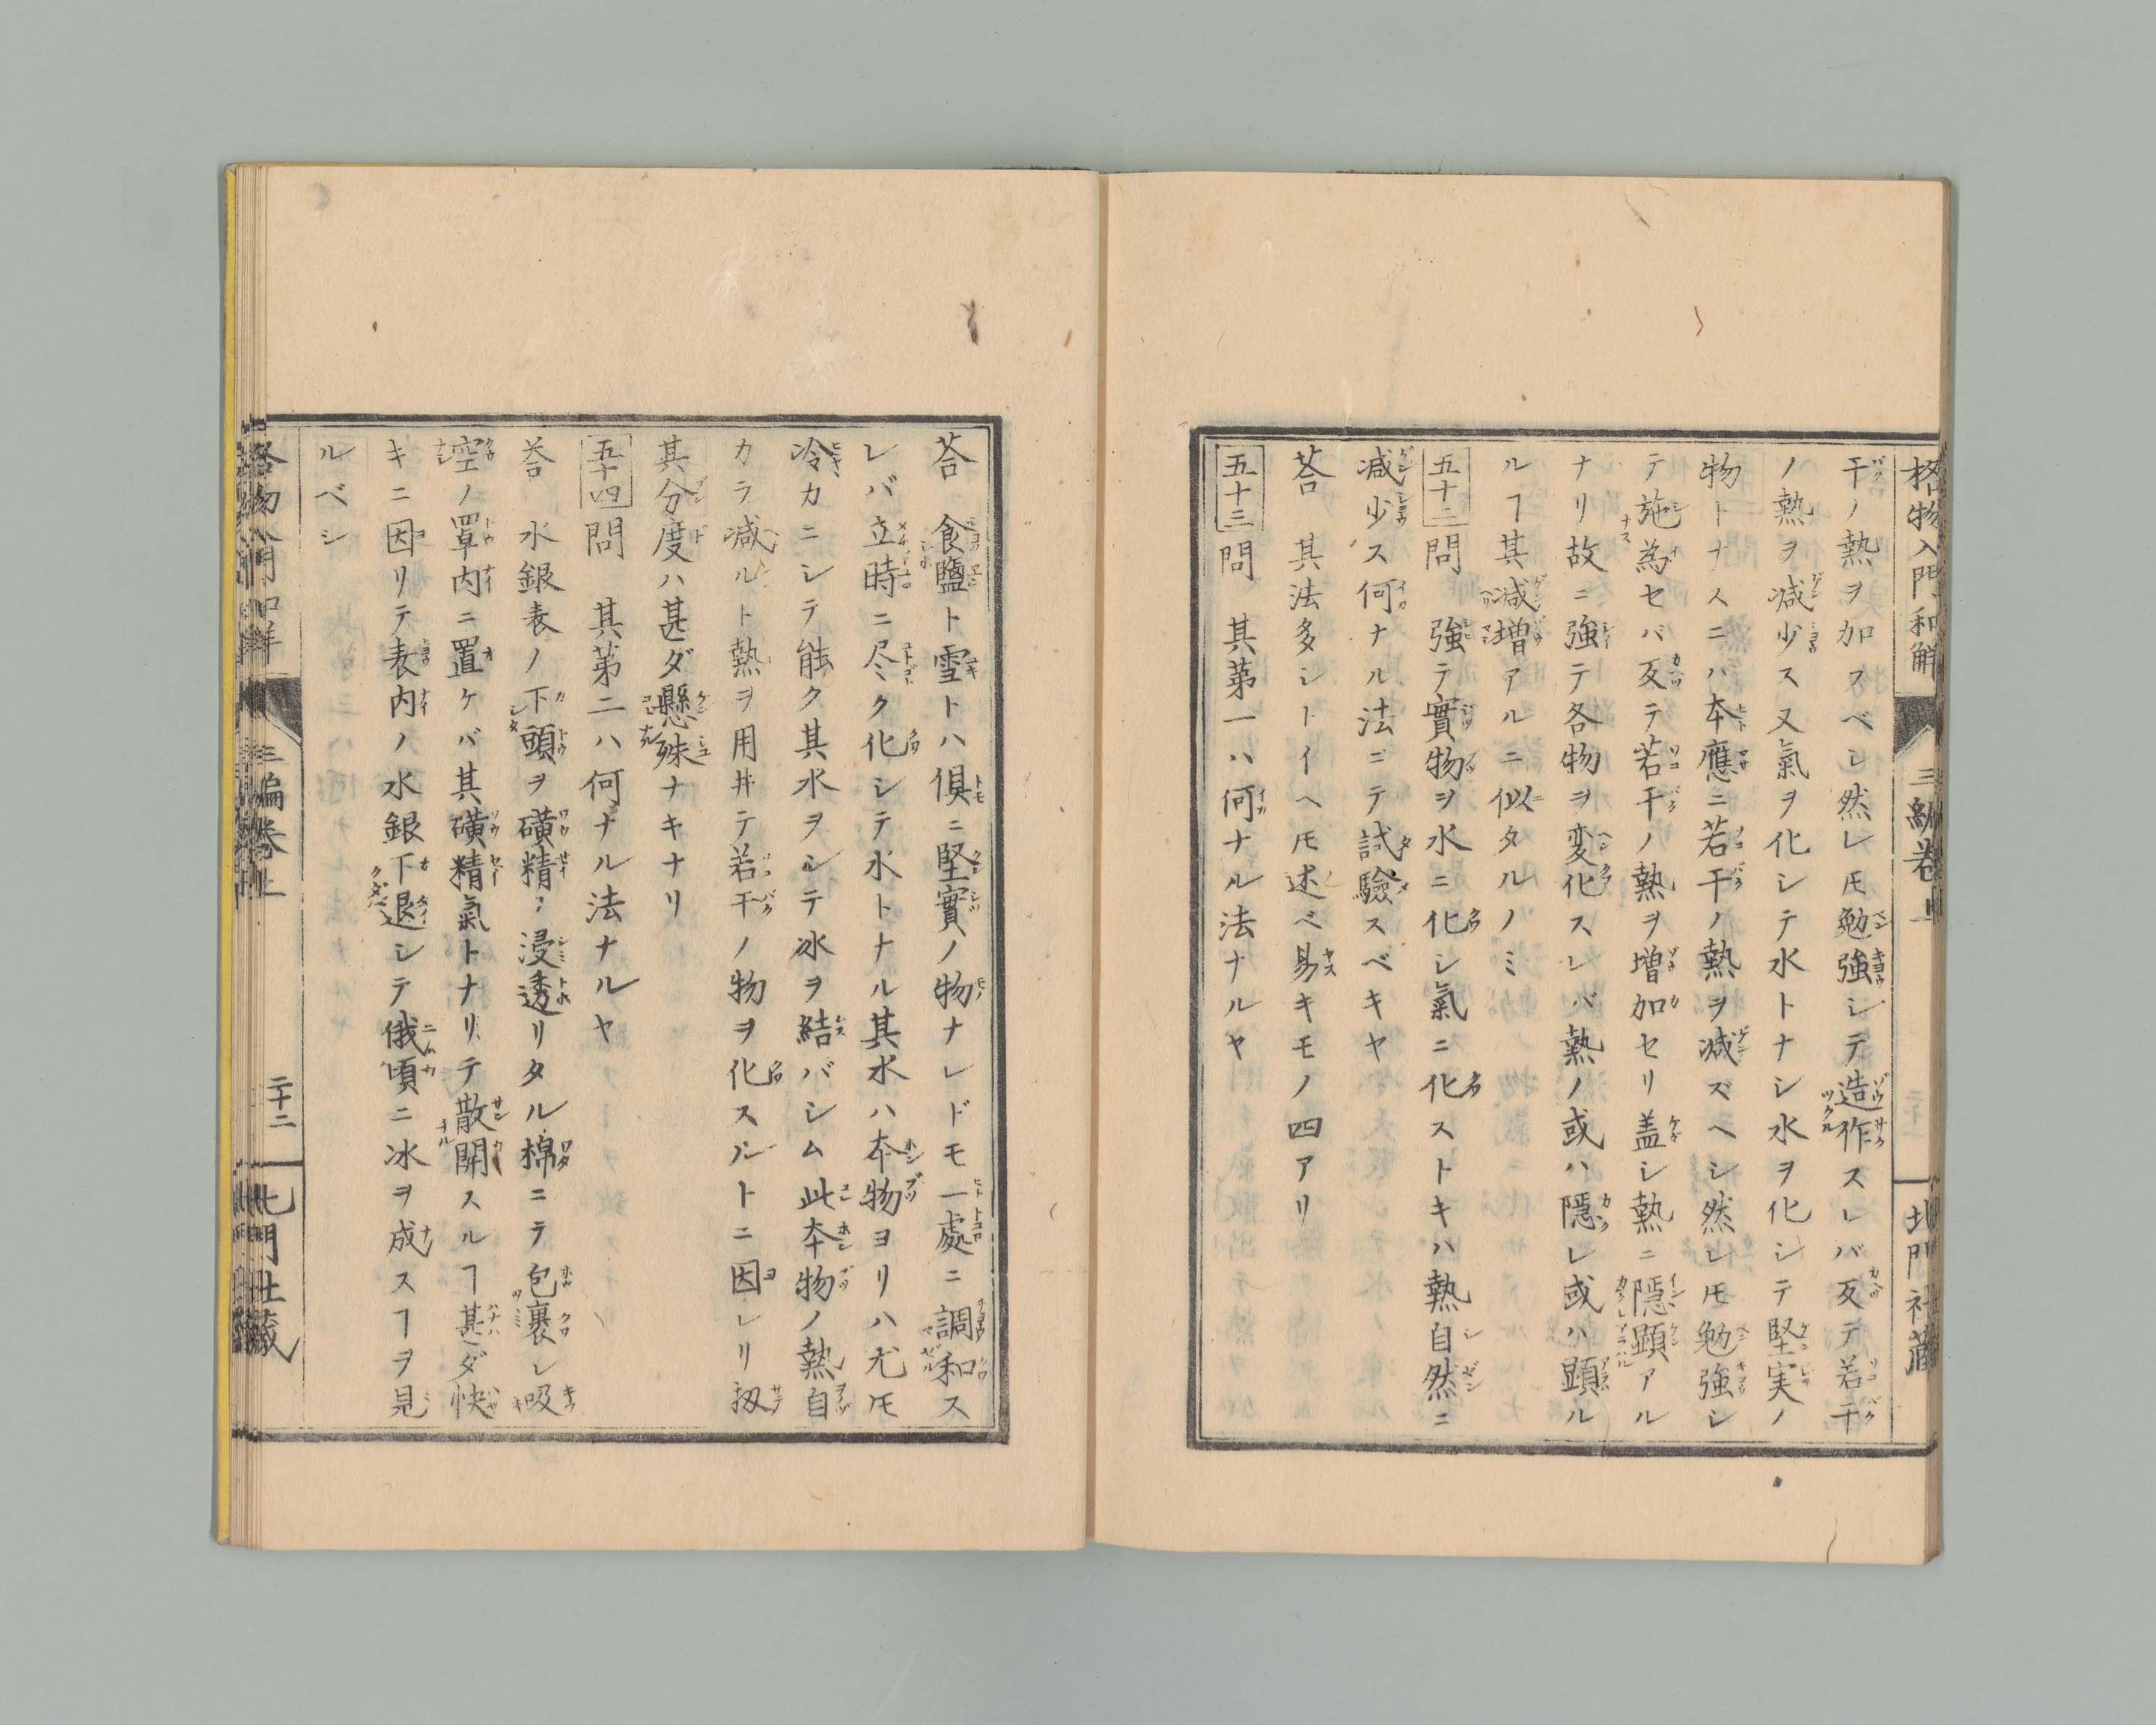 格物入門和解 三編卷上 北門社藏
干ノ熱ヲ加フベシ然レ𪜈勉強シテ造作スレバ反テ若干
ノ熱ヲ減少ス又氣ヲ化シテ水トナシ水ヲ化シテ堅実ノ
物トナスニハ本應ニ若干ノ熱ヲ減ズヘシ然レ𪜈勉強シ
テ施為セバ反テ若干ノ熱ヲ増加セリ盖シ熱ニ隱顕アル
ナリ故ニ強テ各物ヲ変化スレバ熱ノ或ハ隱レ或ハ顕ル
ルヿ其減増アルニ似タルノミ
五十二問 強テ實物ヲ水ニ化シ氣ニ化ストキハ熱自然ニ
減少ス何ナル法ニテ試驗スベキヤ
荅 其法多シトイヘ𪜈述ベ易キモノ四アリ
五十三問 其第一ハ何ナル法ナルヤ
荅 食鹽ト雪トハ倶ニ堅實ノ物ナレドモ一處ニ調和ス
レバ立時ニ尽ク化シテ水トナル其水ハ本物ヨリハ尤𪜈
冷カニシテ能ク其水ヲシテ冰ヲ結バシム此本物ノ熱自
カラ減ルト熱ヲ用井テ若干ノ物ヲ化スルトニ因レリ扨
其分度ハ甚ダ懸殊ナキナリ
五十四問 其第二ハ何ナル法ナルヤ
荅 水銀表ノ下頭ヲ磺精ニ浸透リタル棉ニテ包裹シ吸
空ノ罩内ニ置ケバ其磺精氣トナリテ散開スルヿ甚ダ快
キニ因リテ表内ノ水銀下退シテ俄頃ニ冰ヲ成スヿヲ見
ルベシ
格物入門和解 三編卷上 二十二 北門社藏